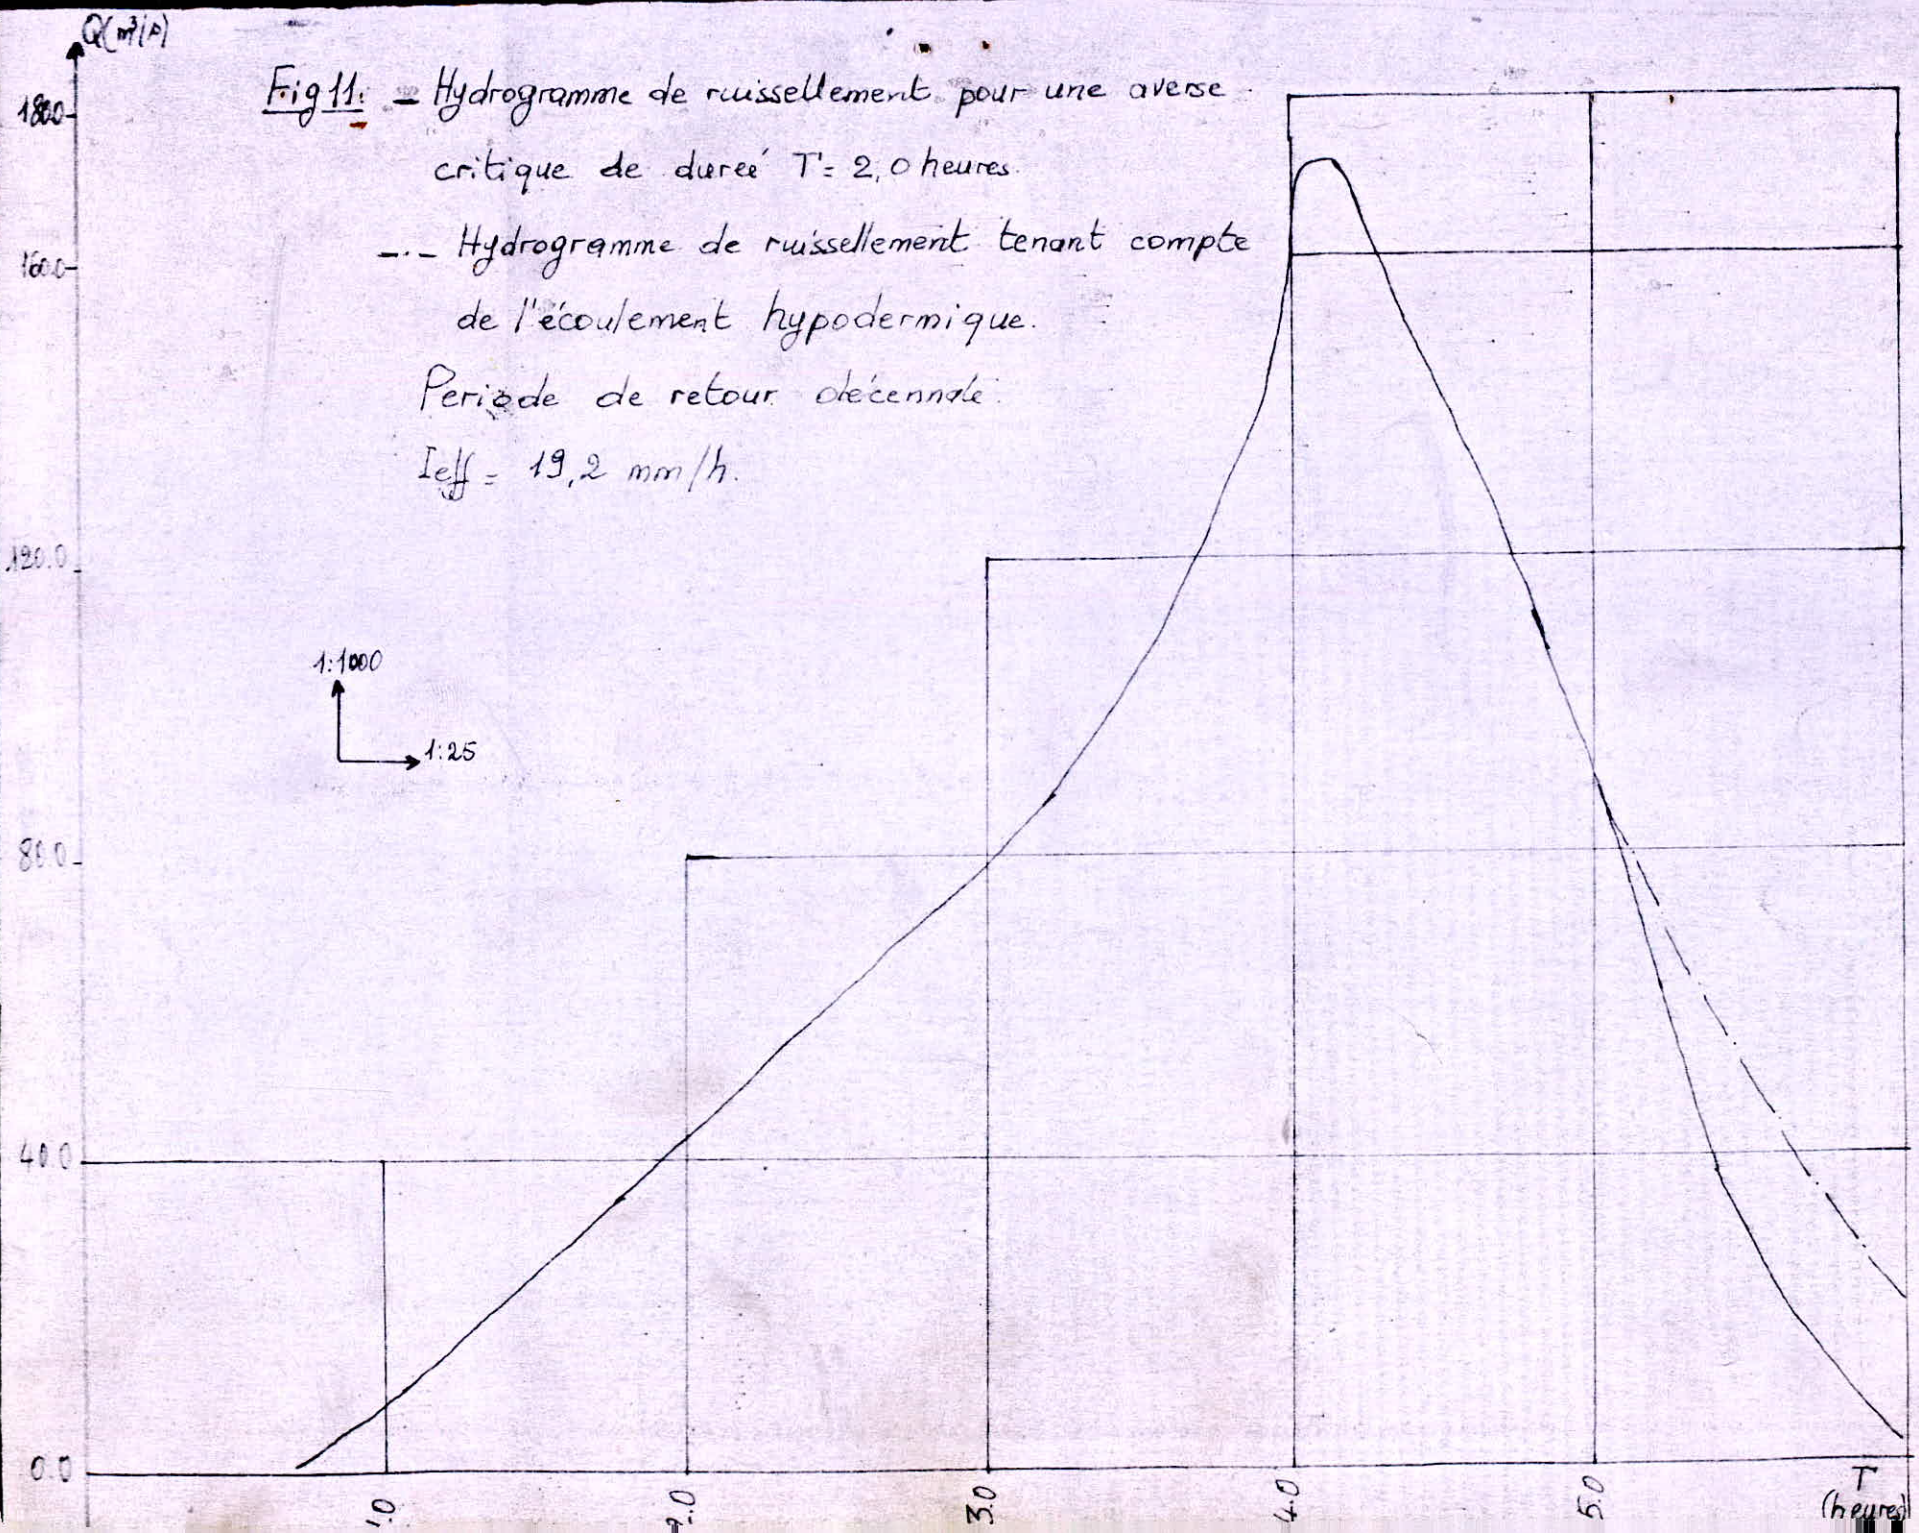 Q(m³/s)
Fig 11: - Hydrogramme de ruissellement pour une averse
critique de dureé T= 2,0 heures.
-.- Hydrogramme de ruissellement tenant compte
de l'écoulement hypodermique.
Periode de retour décennale.
Ieff = 19,2 mm/h.
180.0
160.0
120.0
80.0
40.0
0.0
1:1000
1:25
1.0
2.0
3.0
4.0
5.0
T
(heures)